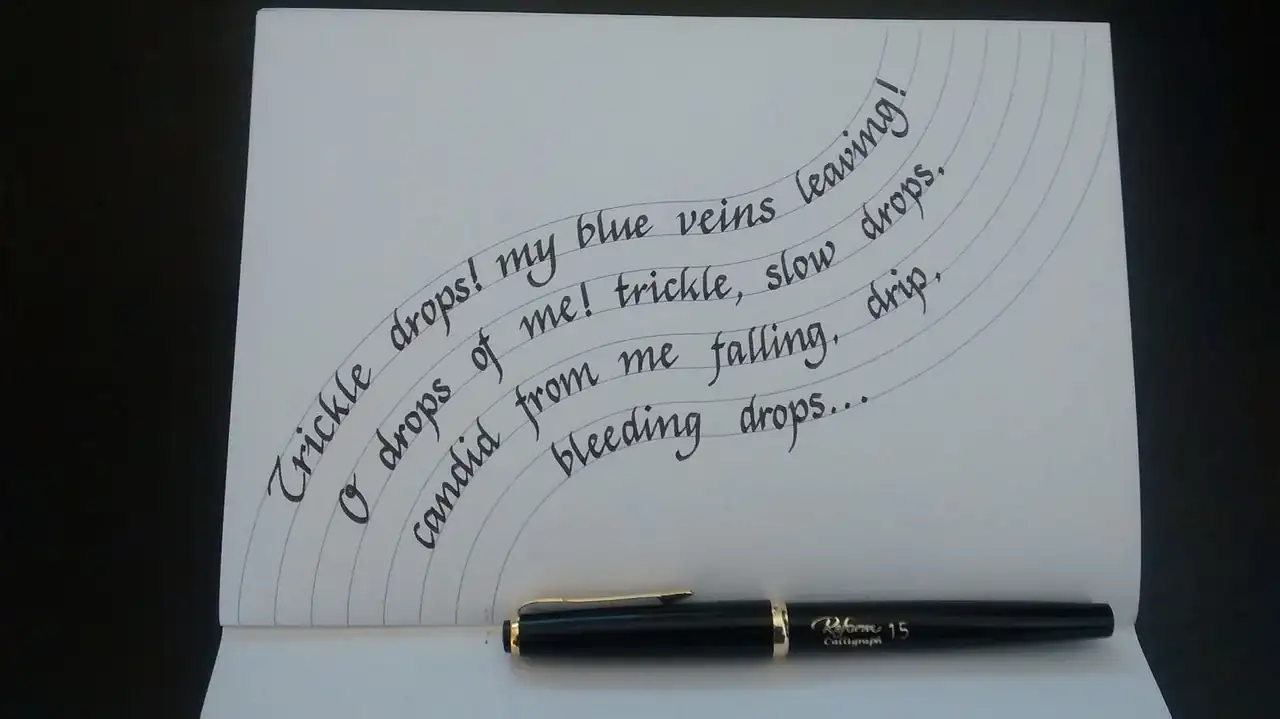 Trickle drops! my blue veins leaving!
O drops of me! trickle, slow drops.
candid from me falling. drip,
bleeding drops...
Reform 15
Calligraph